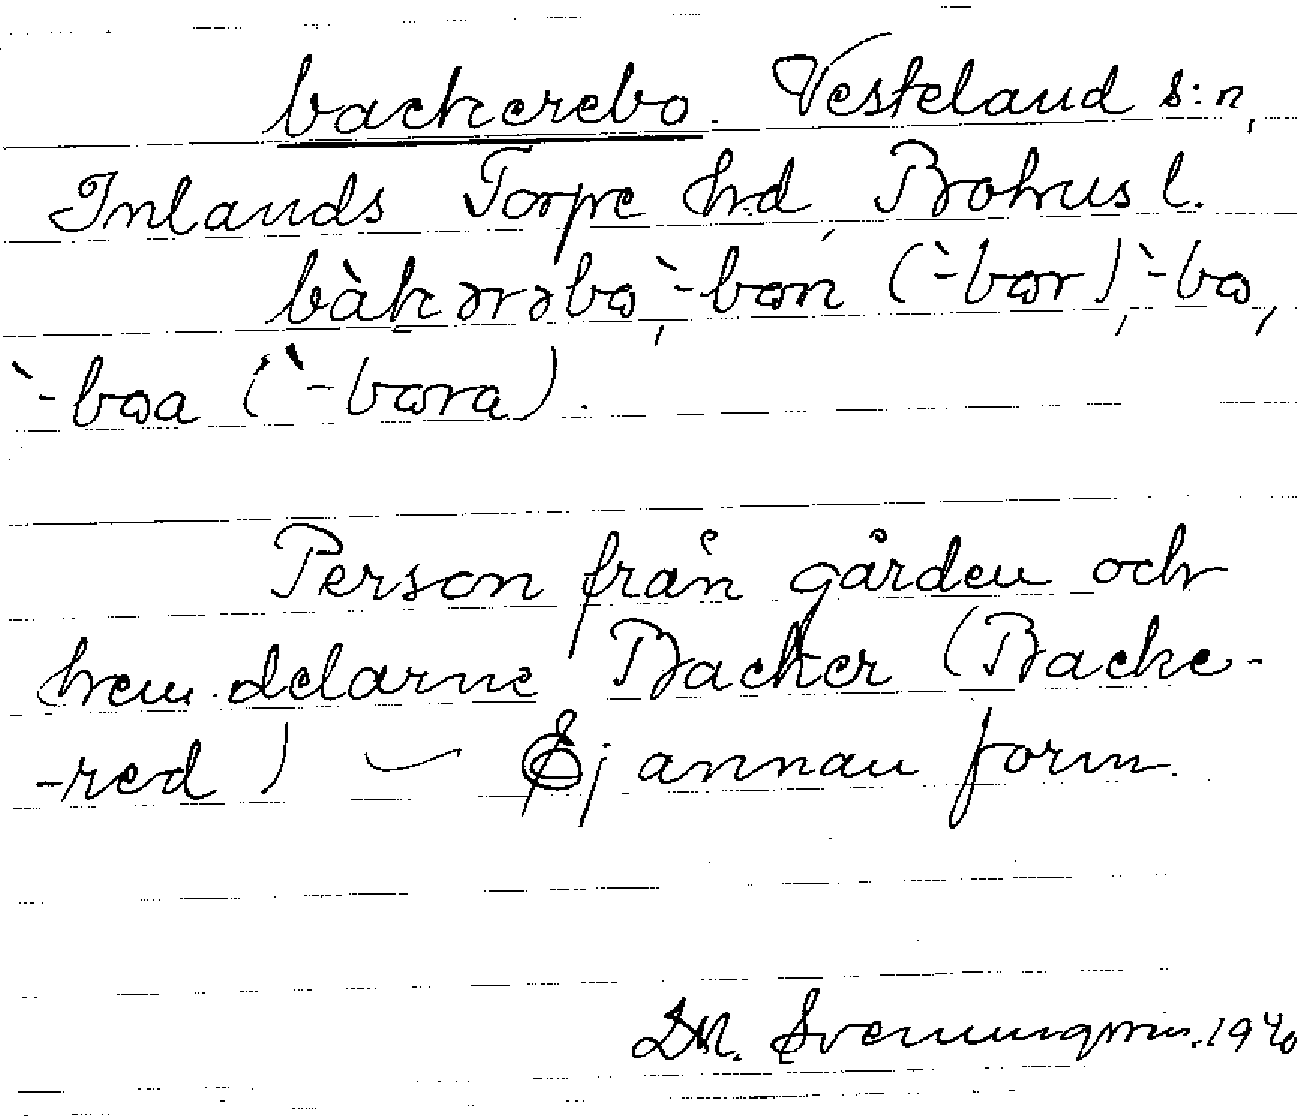 backerebo. Vesteland s:n,
Inlands Torpe hd Bohus l.
bàkərəbɷ, `-bɷn (`-bɷr), `-bɷ,
`-bɷa (`-bɷra).
Person från gården och
hemdelarne Backer (Backe-
-red) – Ej annan form.